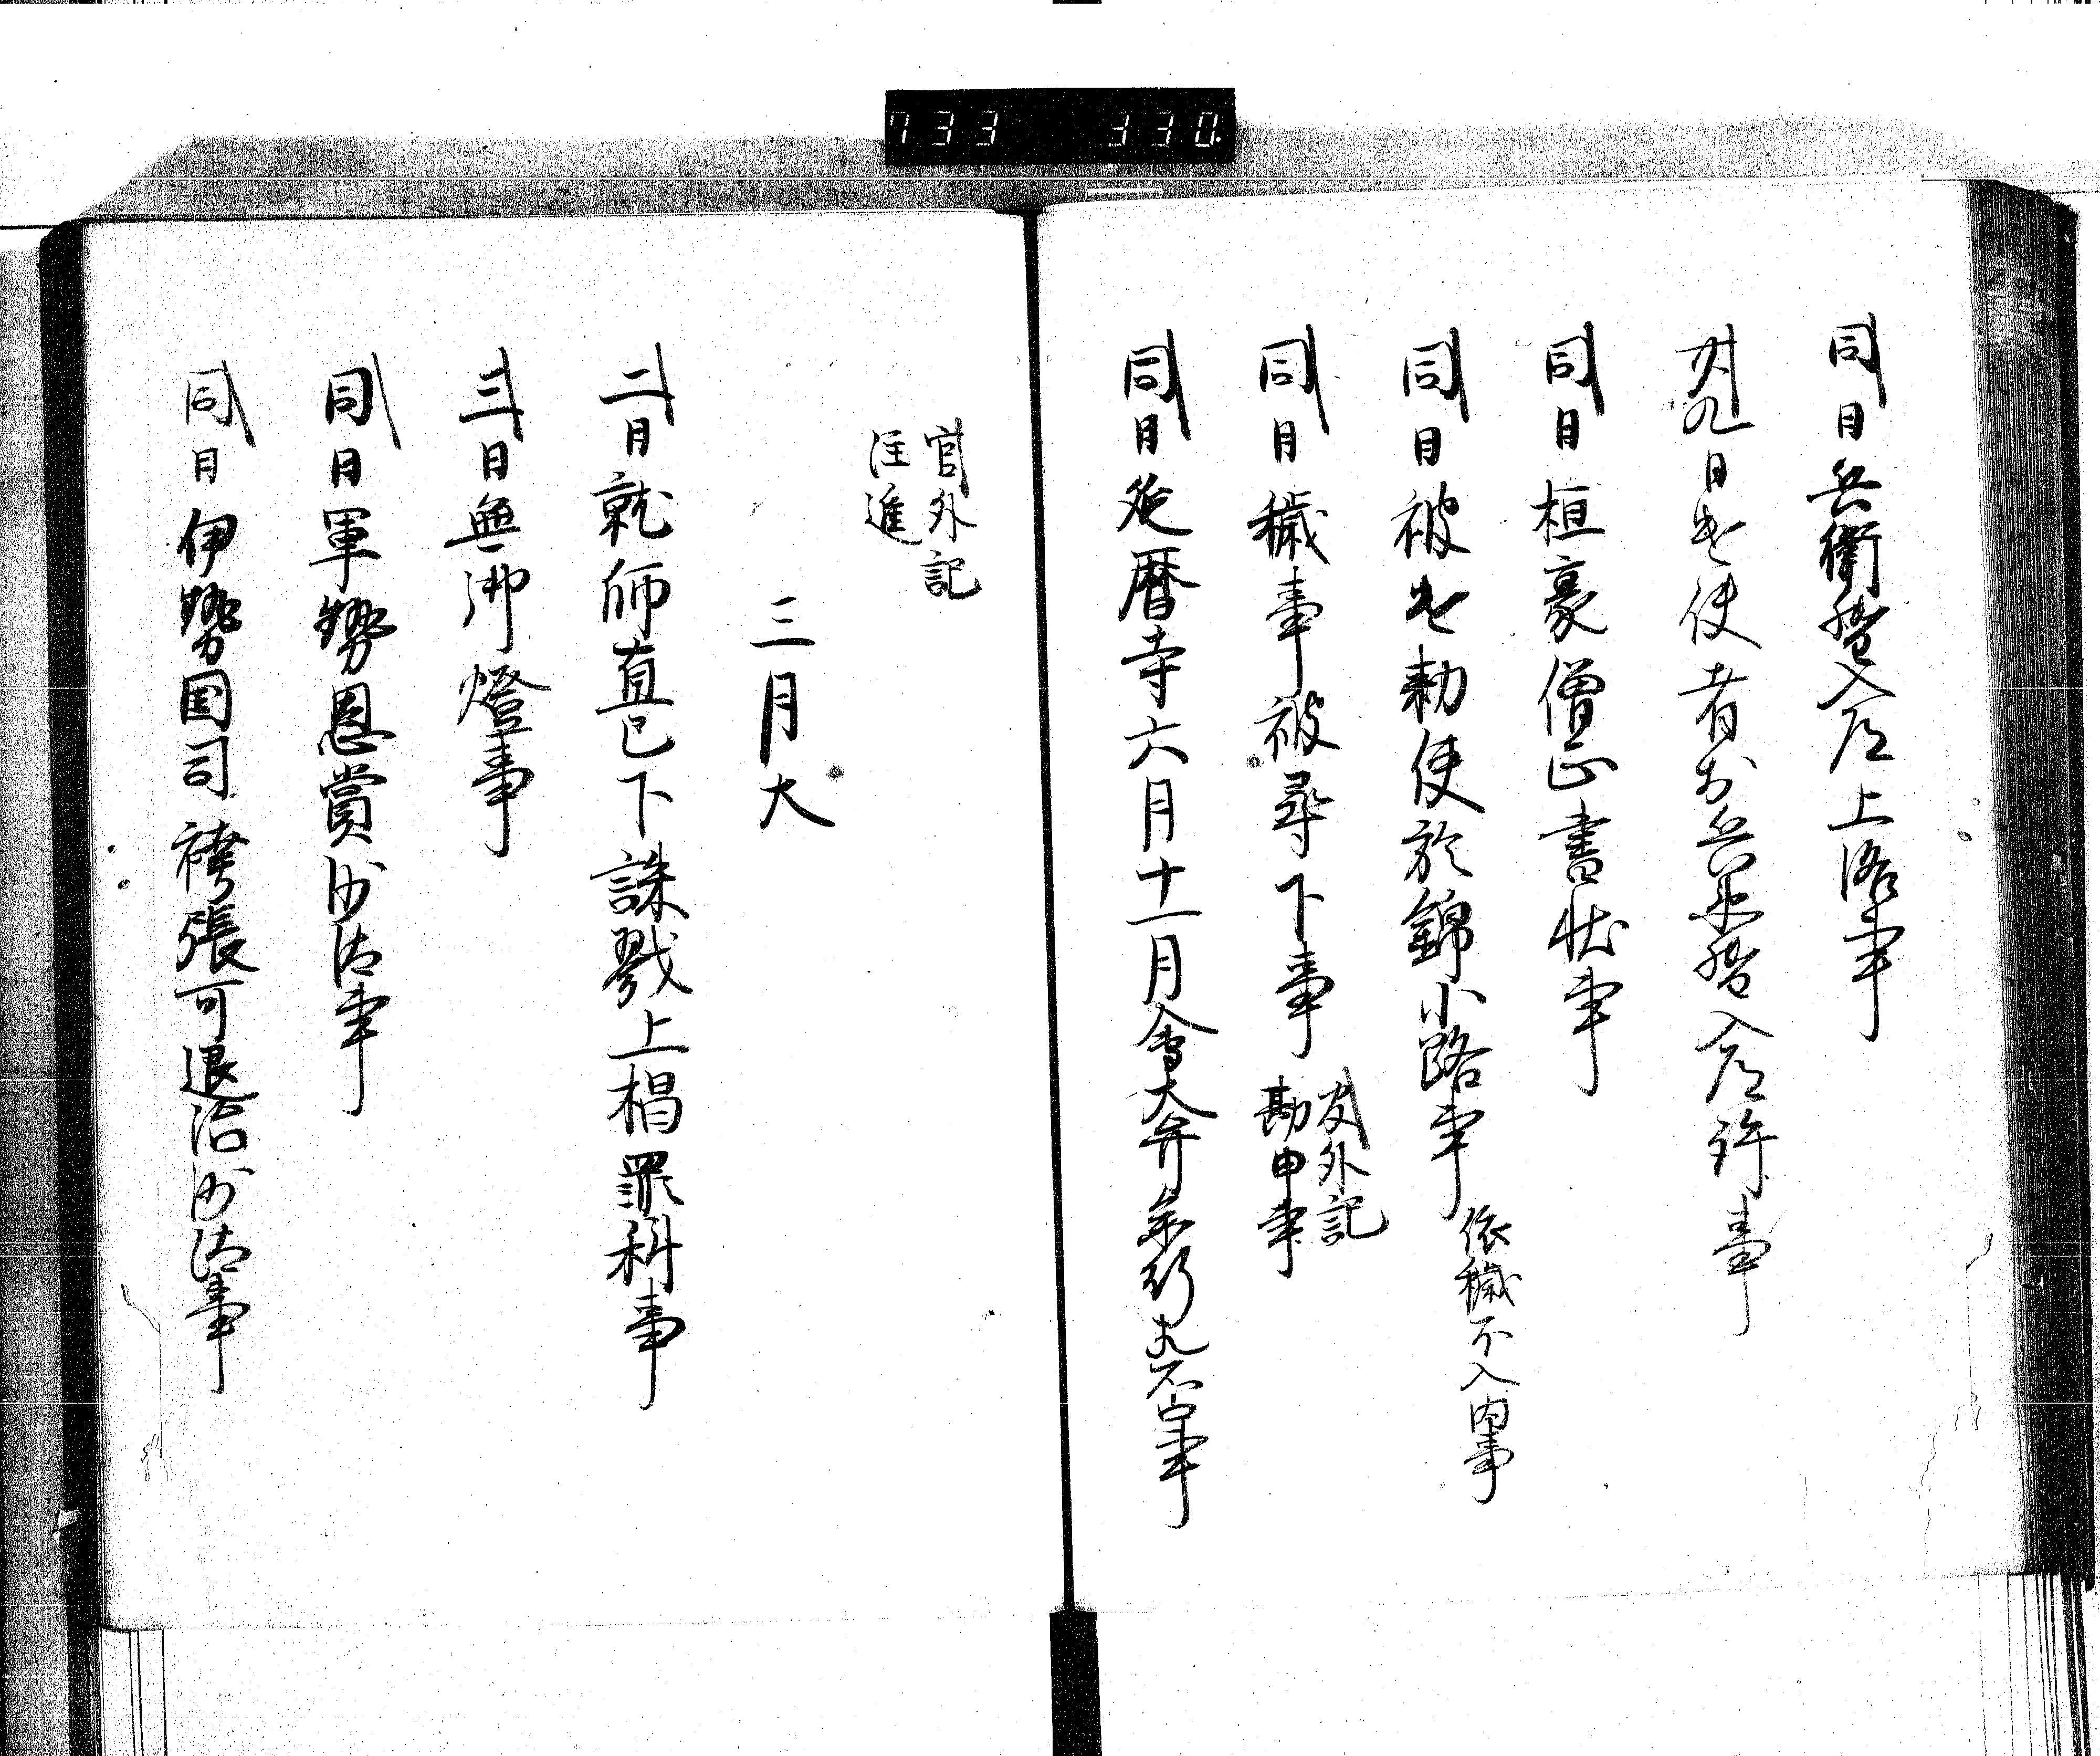 733 330.
同日兵衛督入道上洛事
廿九日遣使者於兵衛督入道許事
同日桓豪僧正書状事
同日被遣勅使於錦小路事 依穢不入内事
同日穢事被尋下事 官外記
勘申事
同日延暦寺六月十一月會大弁参行先否事
官外記
注進
三月大
二日就師直已下誅戮上椙罪科事
三日無御燈事
同日軍勢恩賞沙汰事
同日伊勢国司袴張可退治沙汰事